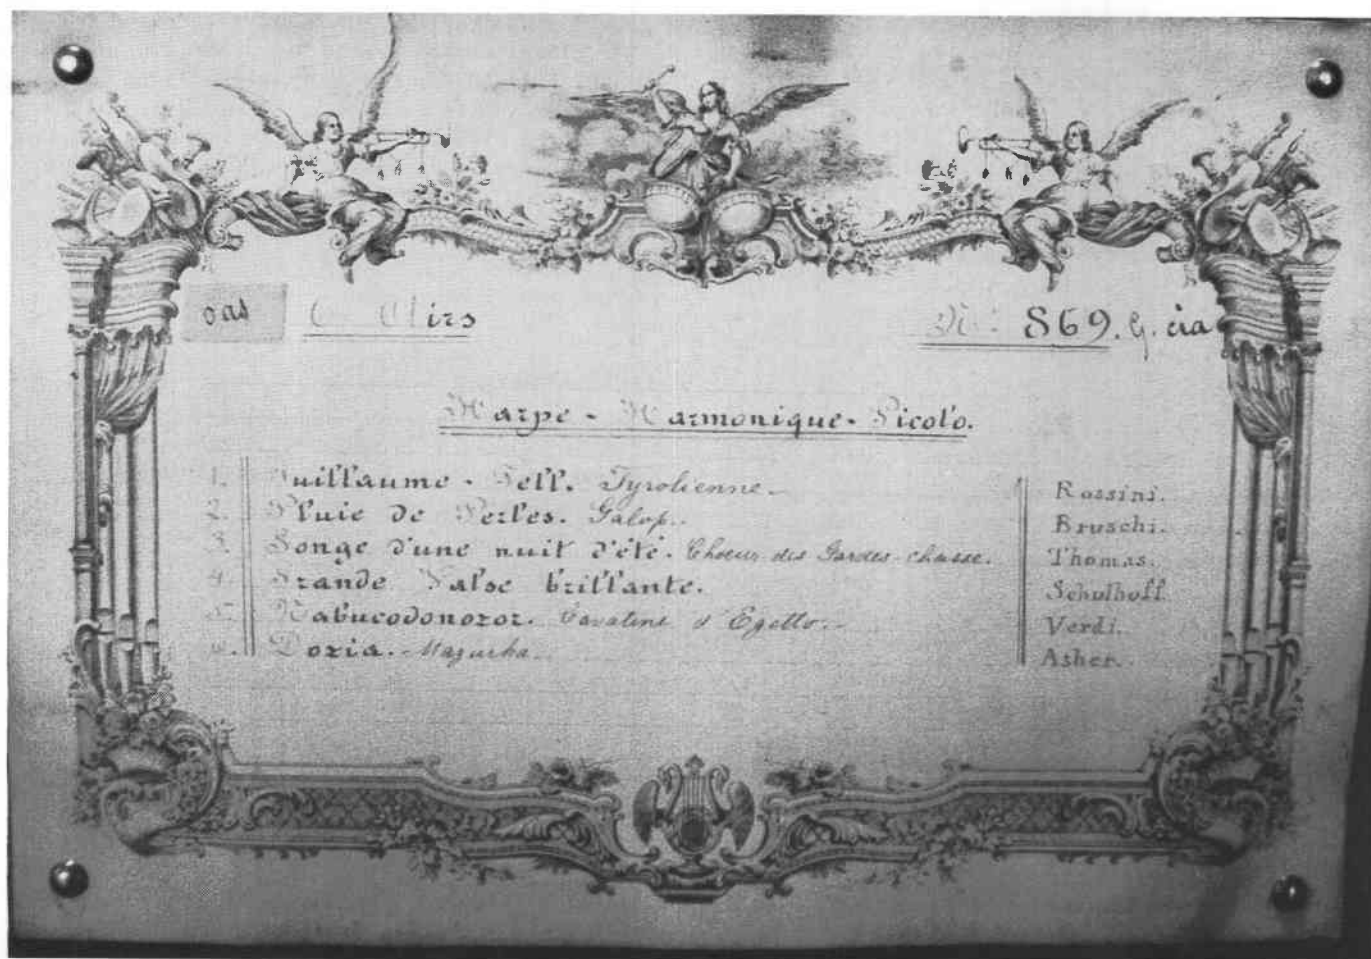 oas 6 Airs Nº 869. G. cia
Harpe - Harmonique - Picolo.
1. Guillaume - Tell. Tyrolienne. Rossini.
2. Pluie de Perles. Galop. Bruschi.
3. Songe d'une nuit d'été. Choeur des Gardes-chasse. Thomas.
4. Grande Valse brillante. Schulhoff.
5. Nabucodonozor. Cavatine d' Verdi.
6. Doria. Mazurka. Asher.